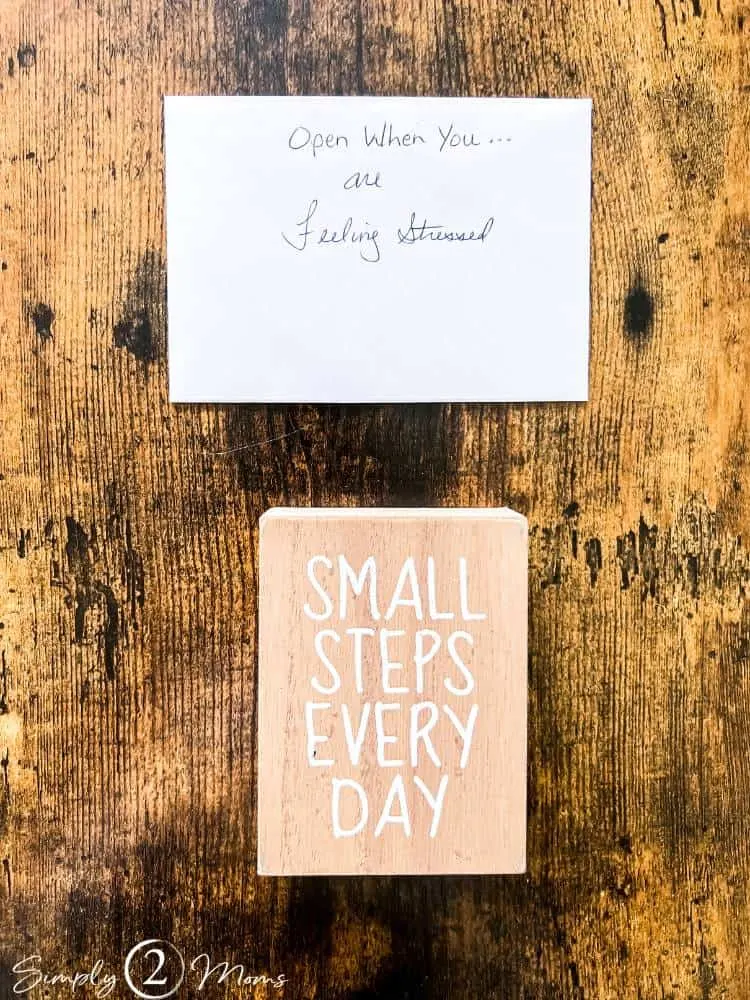 Open When You...
are
Feeling Stressed
SMALL
STEPS
EVERY
DAY
Simply 2 Moms